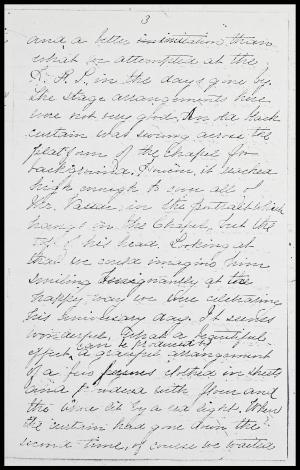 3
and a better imitation than
what we attempted at the
L. H. P. in the days gone by.
The stage arrangements here
were not very good. An old black
curtain was swung across the
platform of the Chapel for
background, I mean, it reached
high enough to cover all of
Mr. Vassar, in the portrait which
hangs in the Chapel, but the
top of his head. Looking at
that we could imagine him
smiling benignantly at the
happy way we were celebrating
his anniversary day. It seems
wonderful, what a beautiful
effect can be produced by
a graceful arrangement
of a few figures clothed in sheets
and powdered with flour and
the scene lit by a red light. When
the curtain had gone down the
second time, of course we waited